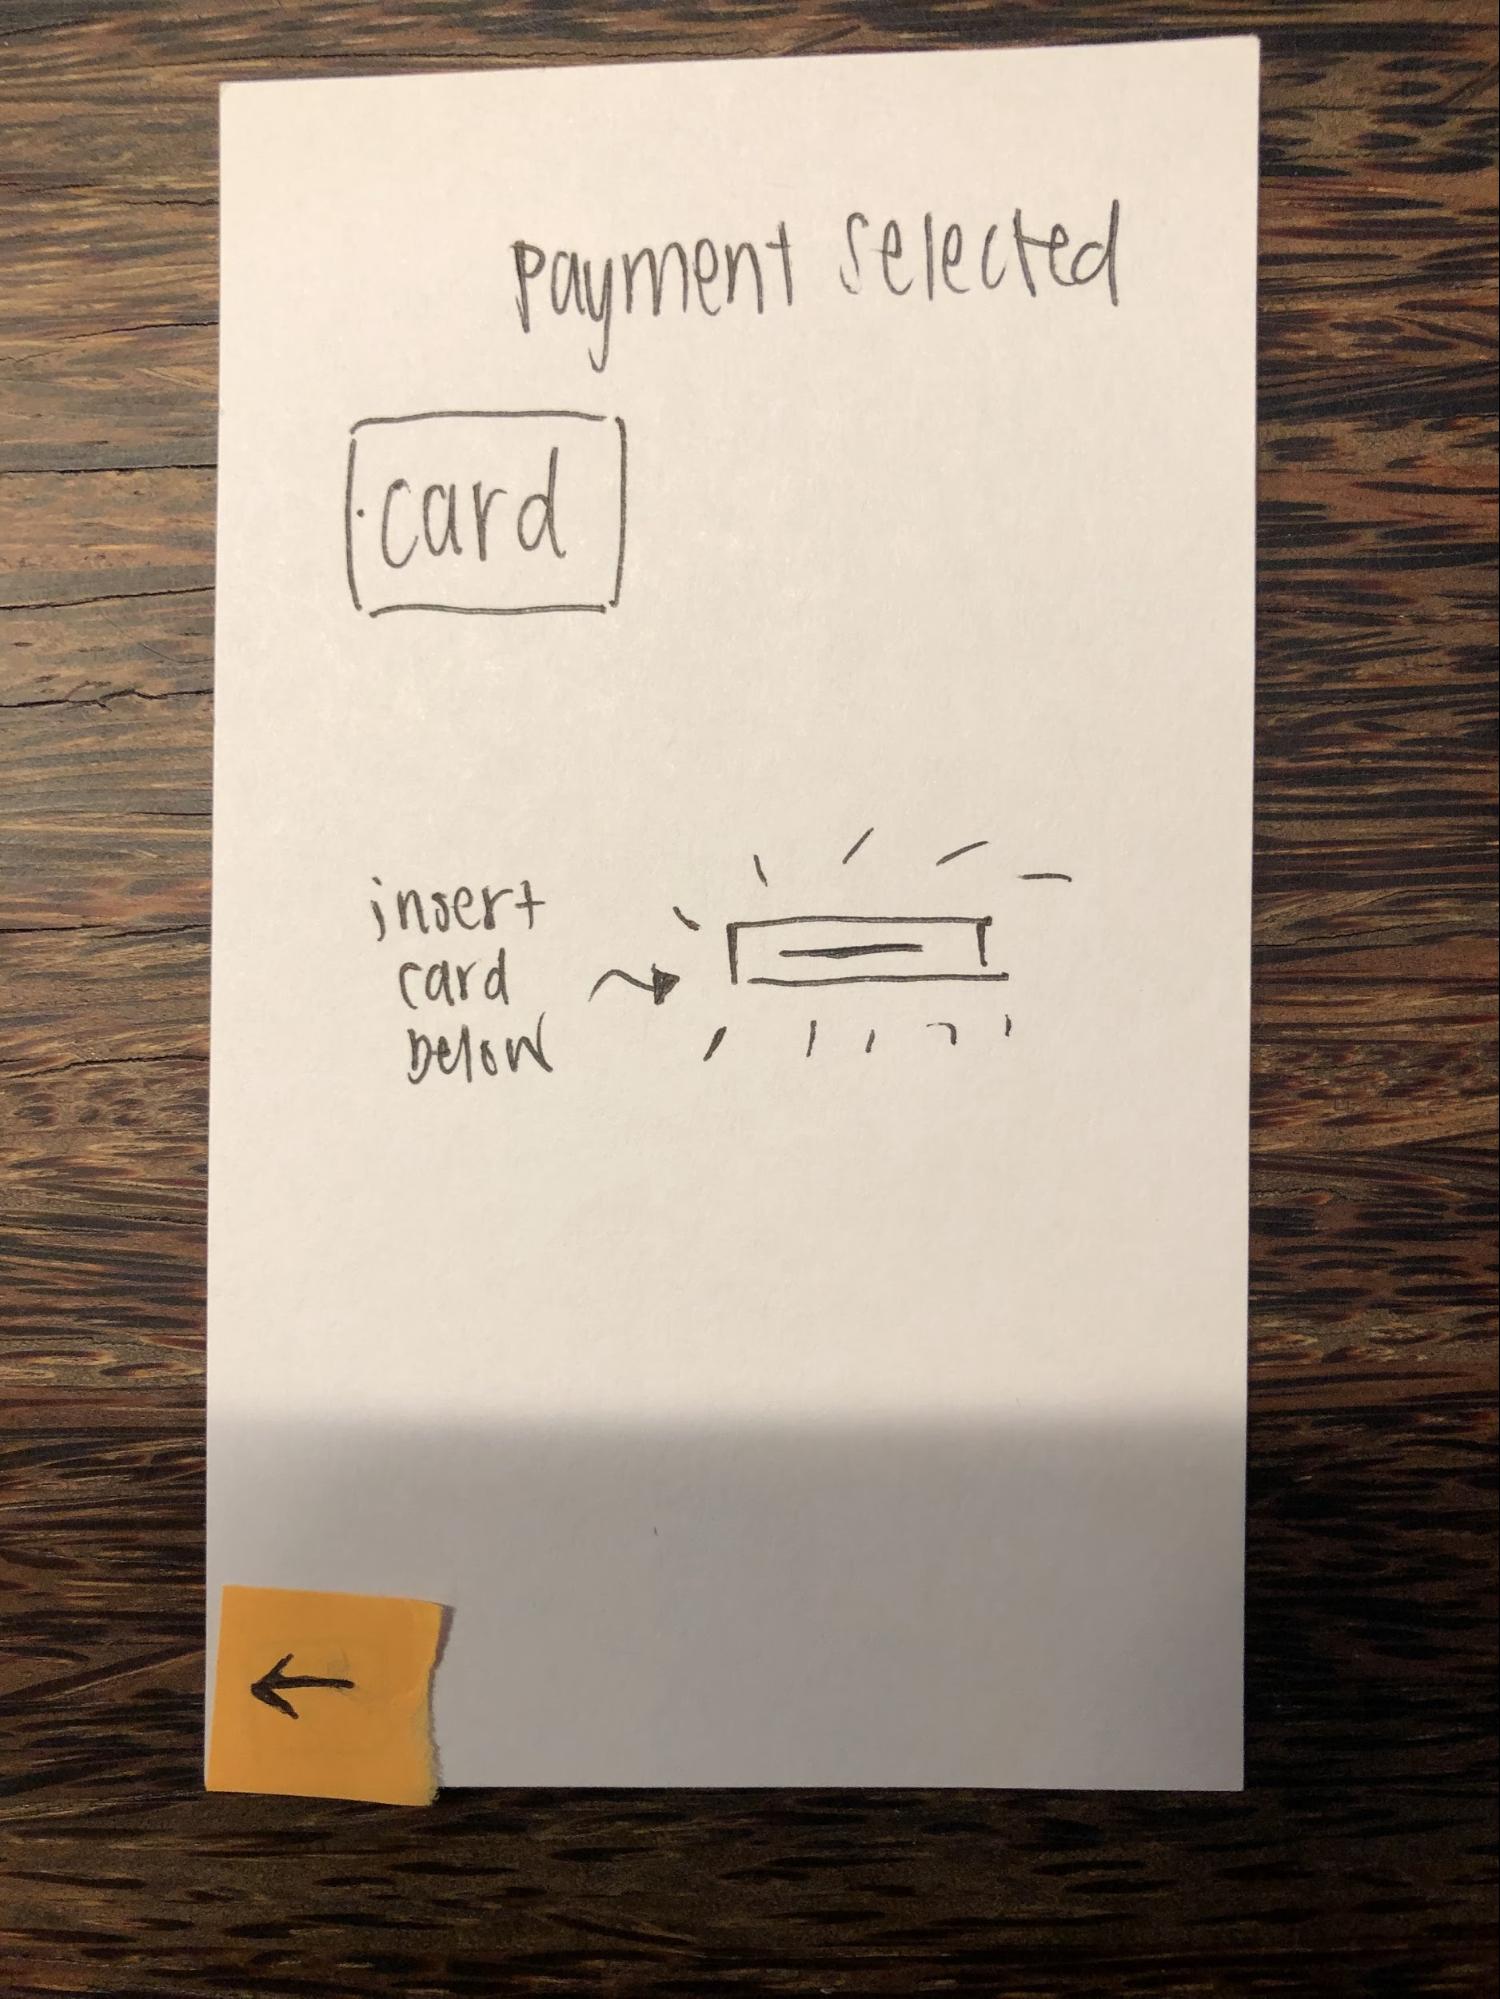 payment selected
card
insert
card
below
←